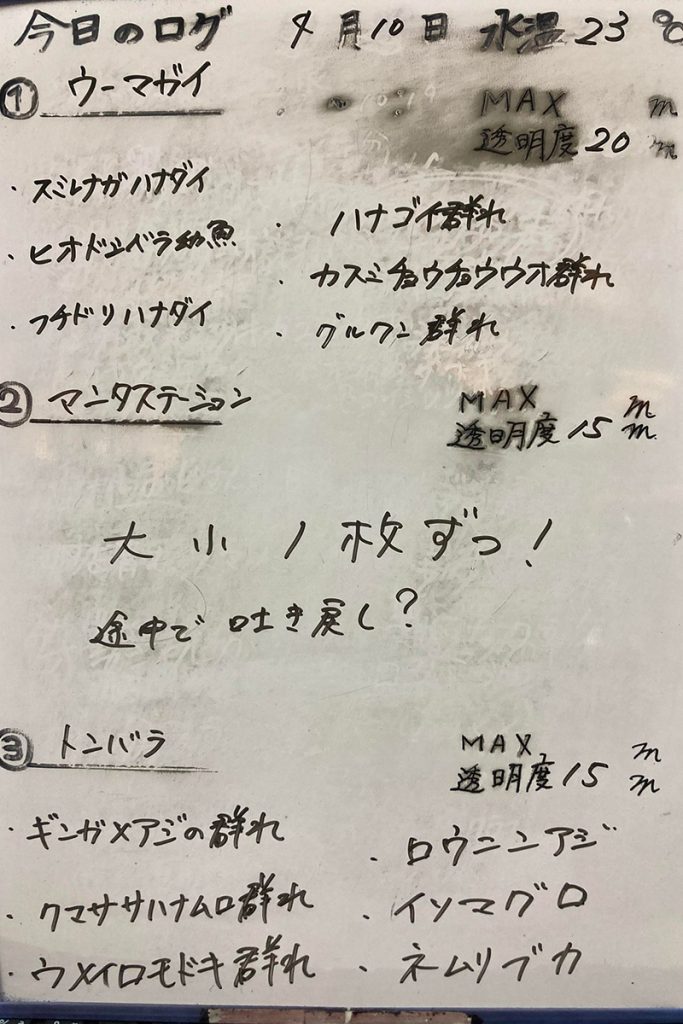 今日のログ 4月10日 水温23℃
① ウーマガイ MAX m
透明度20 m
・スミレナガハナダイ
・ヒオドシベラ幼魚
・フチドリハナダイ
・ハナゴイ群れ
・カスミチョウチョウウオ群れ
・グルクン群れ
② マンタステーション MAX m
透明度15 m
大小1枚ずつ!
途中で吐き戻し?
③ トンバラ MAX m
透明度15 m
・ギンガメアジの群れ
・クマササハナムロ群れ
・ウメイロモドキ群れ
・ロウニンアジ
・イソマグロ
・ネムリブカ